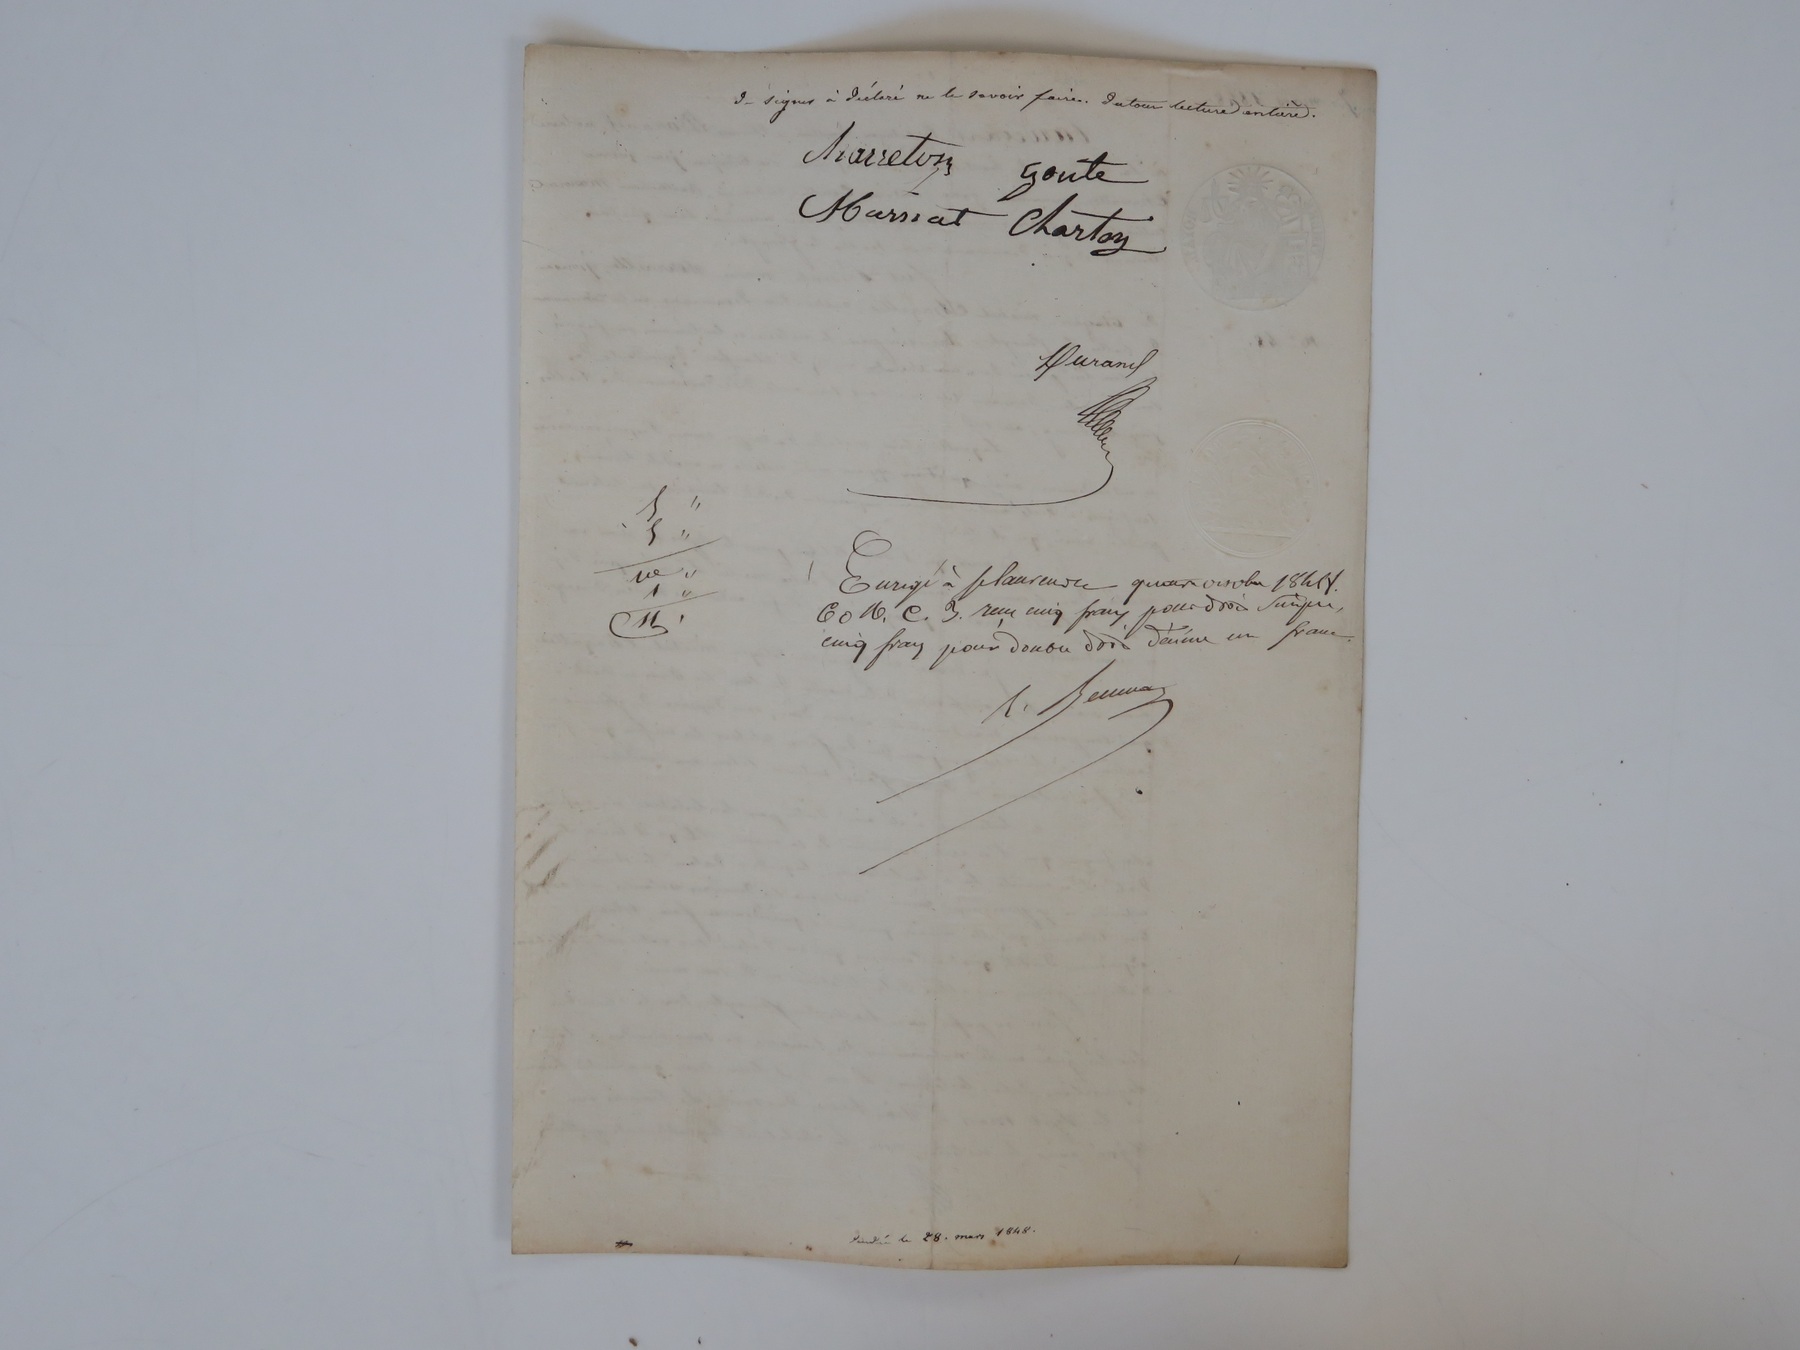 de signer a déclaré ne le savoir faire. du tout lecture entière.
Charreton goute
Marsiat Charton
Durand
5 "
5 "
10 "
1 "
11 "
à quinze octobre 184
C. 3. reçu cinq francs pour droit simple,
cinq francs pour double droit décime un franc.
le 28. mars 1848.